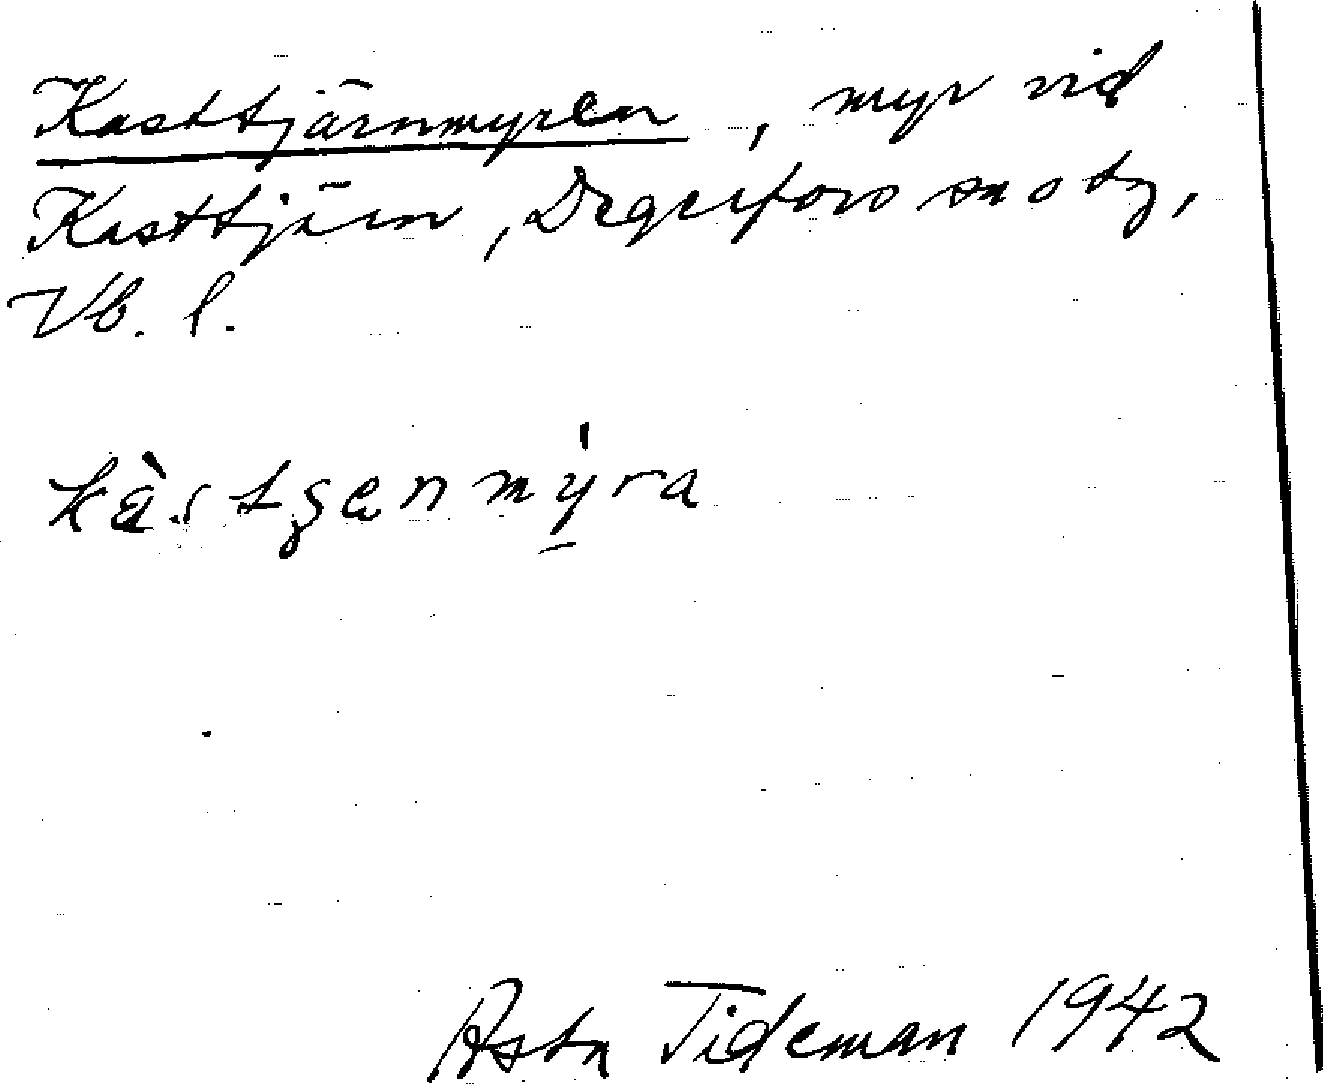 Kasttjärnmyren, myr vid
Kasttjärn, Degerfors sn o tg,
Vb. l.
kàstşenmýra
Asta Tideman 1942